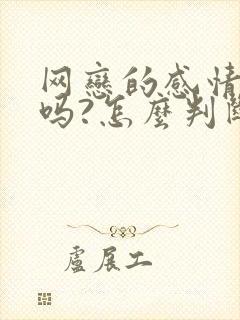 网戀的感情
吗?怎麼判斷
盧展工